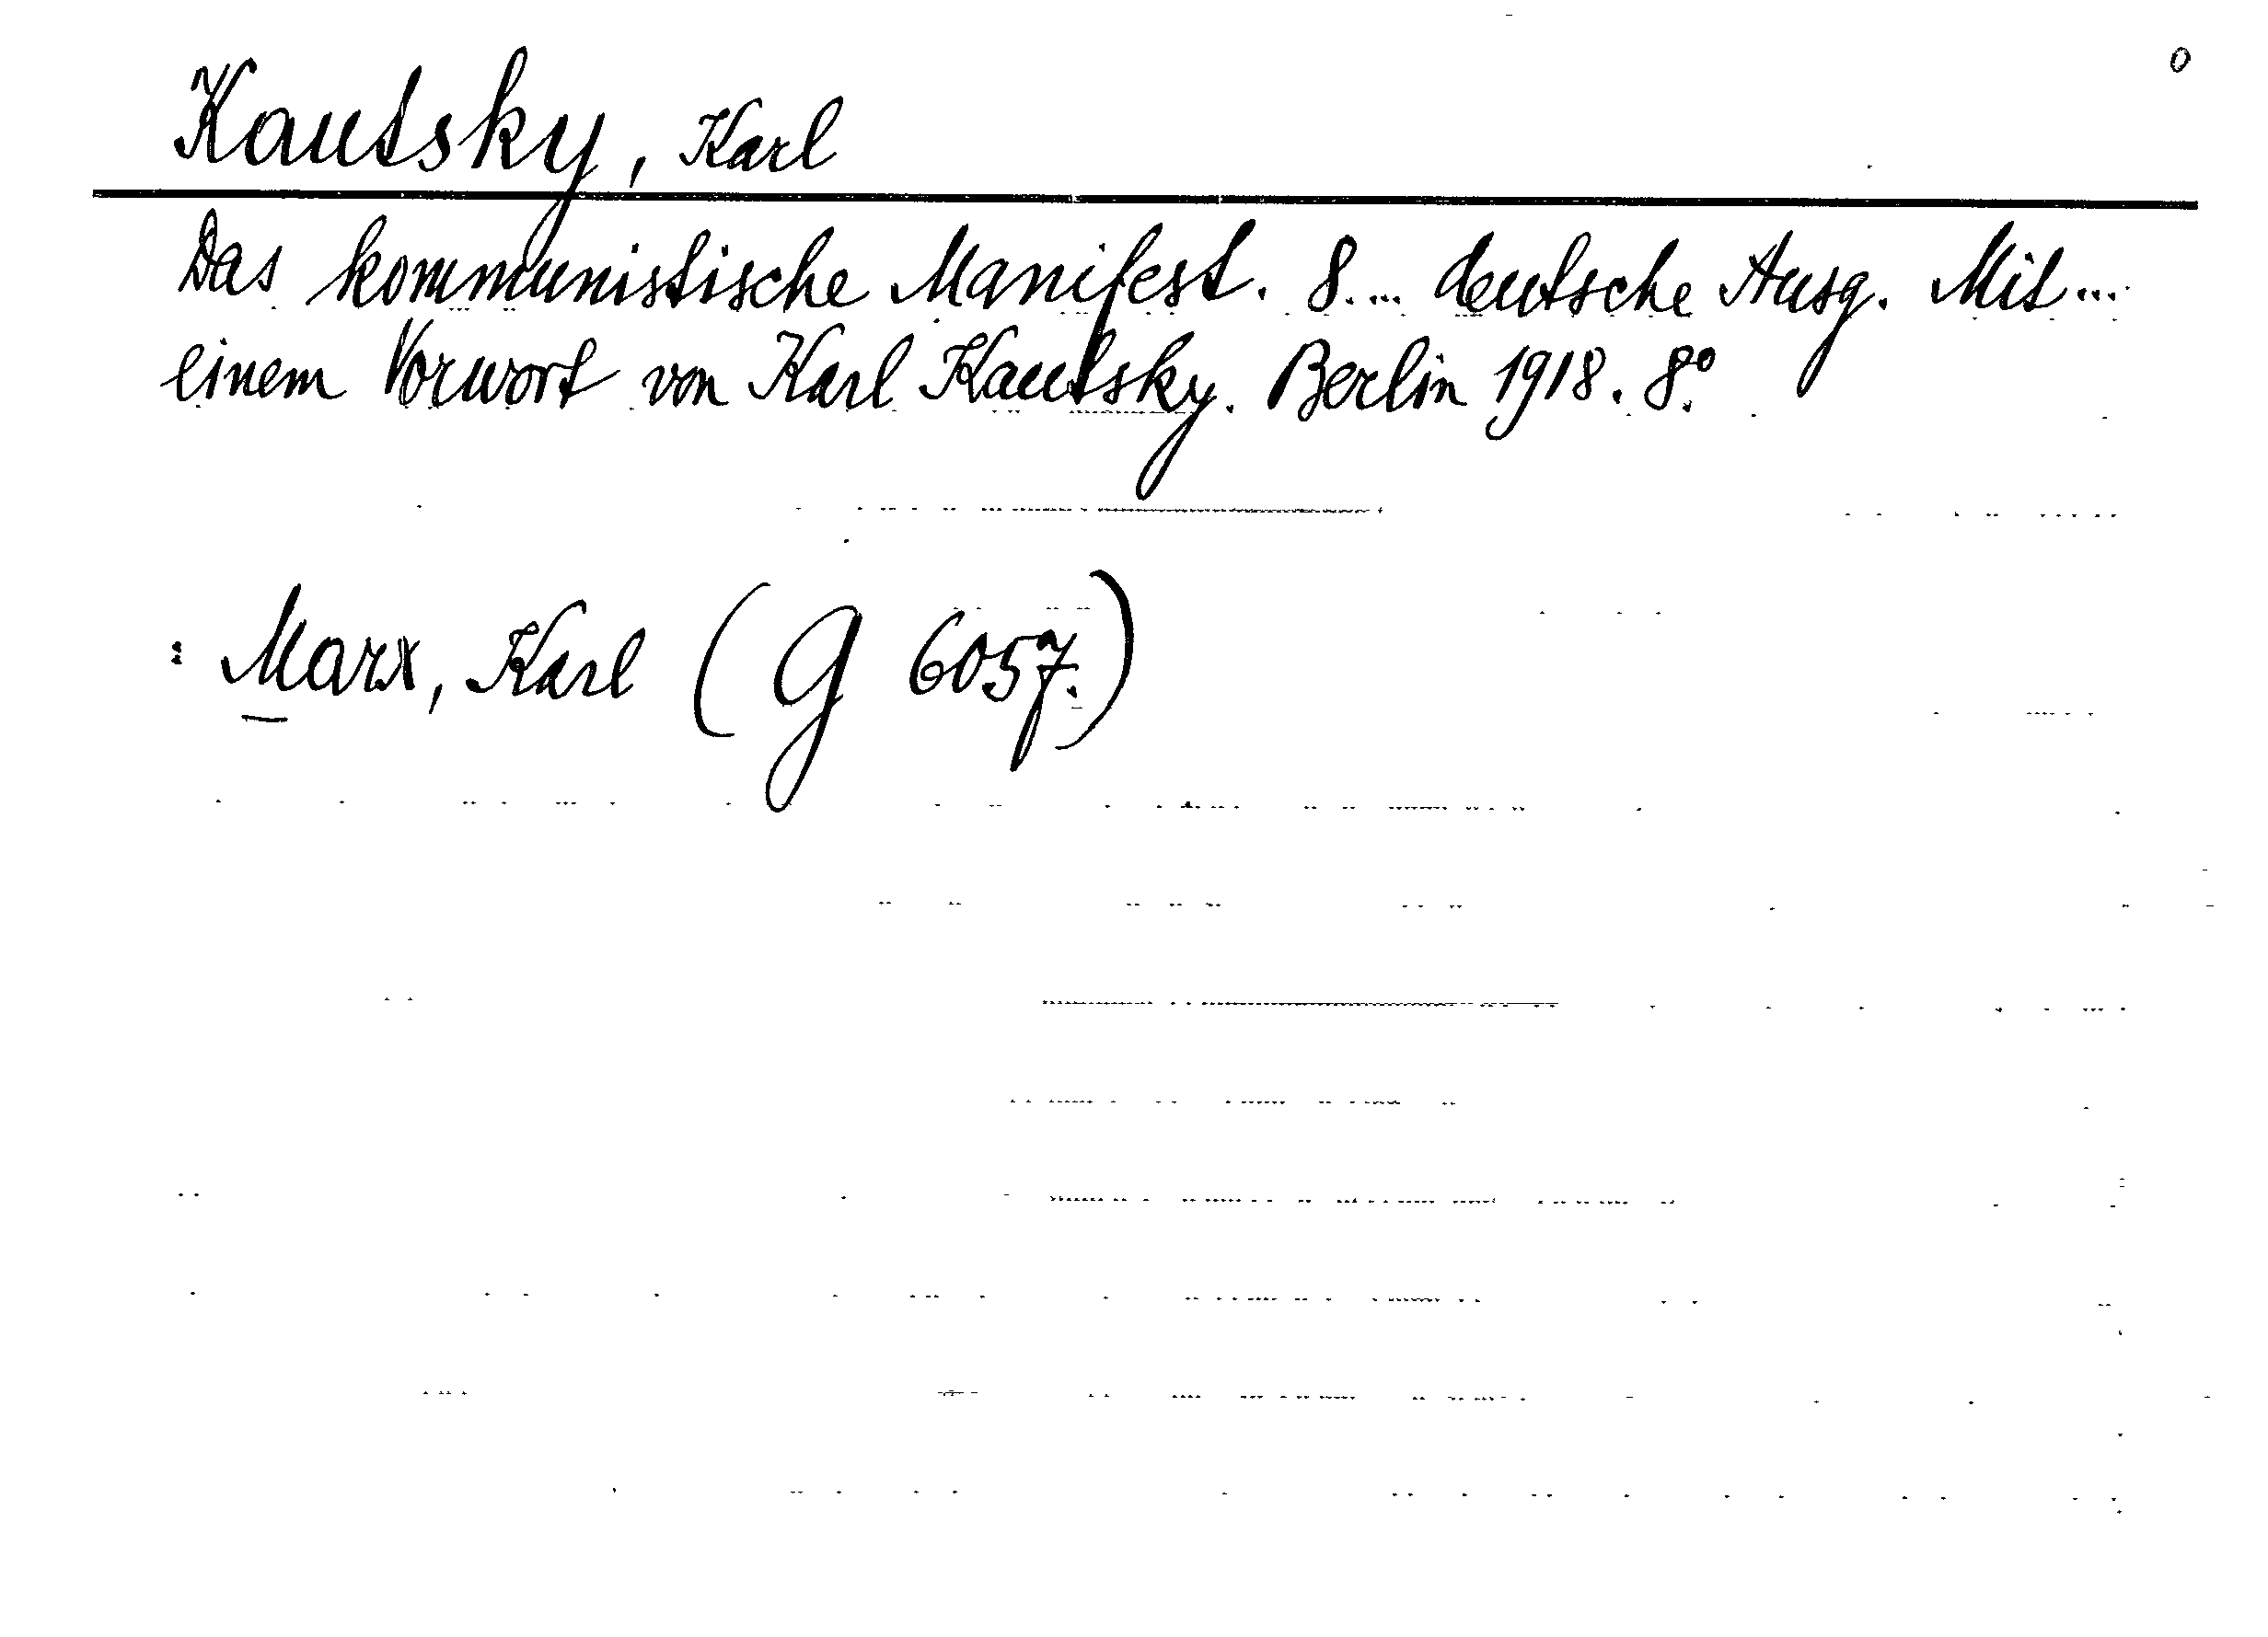 0
Kautsky, Karl
Das kommunistische Manifest. 8.... deutsche Ausg. Mit...
einem Vorwort von Karl Kautsky. Berlin 1918. 8°.
: Marx, Karl (G 6057.)